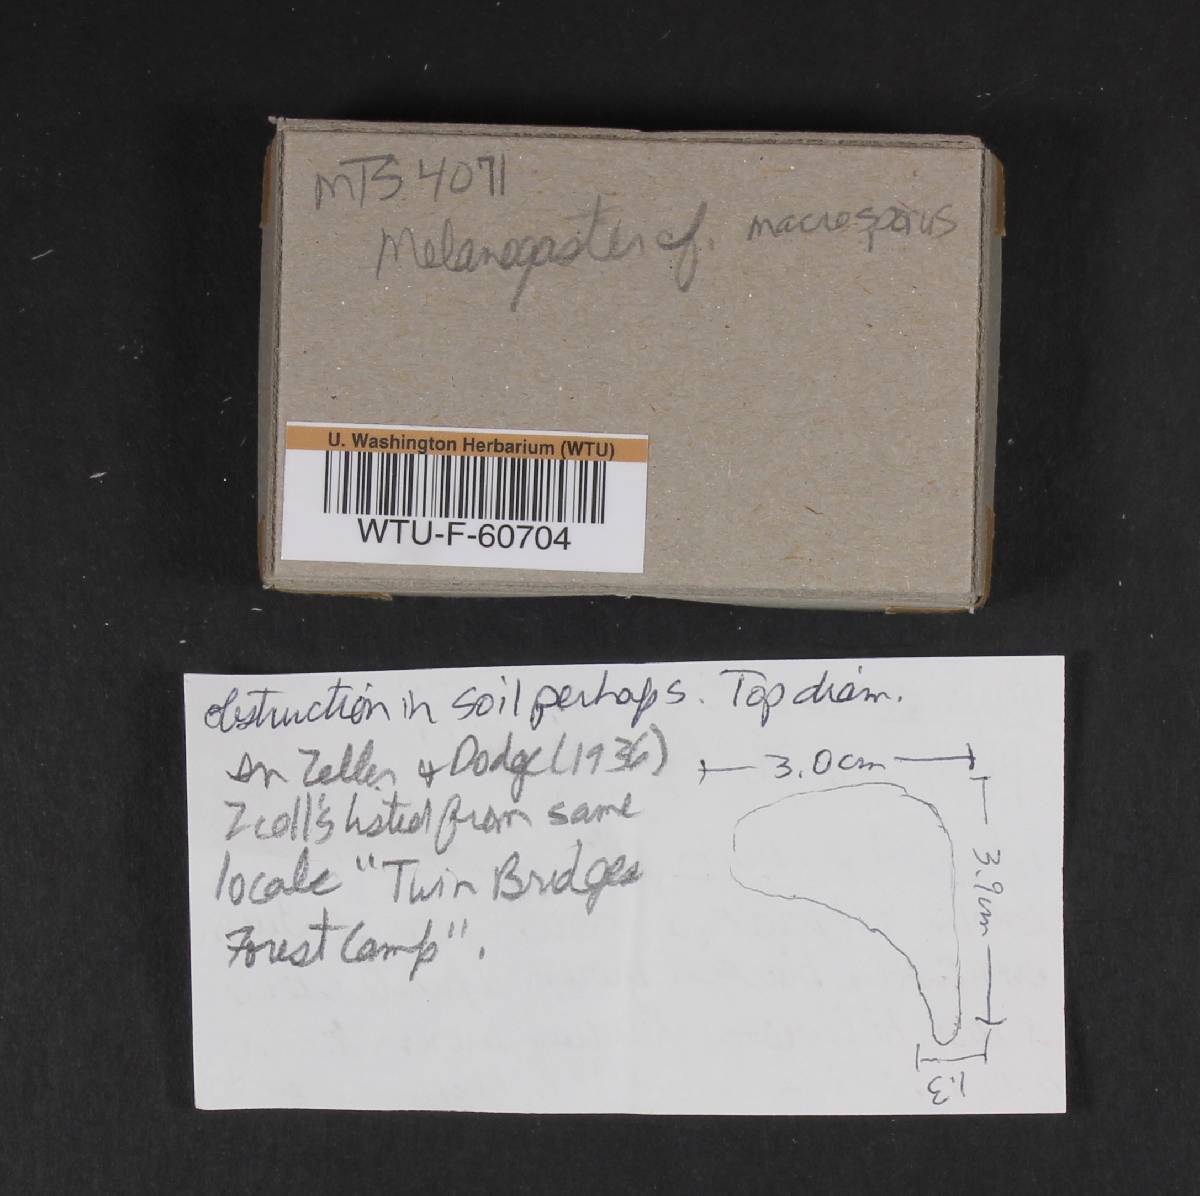 MTS 4071
Melanogaster cf. macrosporus
U. Washington Herbarium (WTU)
WTU-F-60704
obstruction in soil perhaps. Top diam.
In Zeller & Dodge (1936)
2 coll's listed from same
locale "Twin Bridges
Forest Camp".
3.0cm
3.9cm
1.3